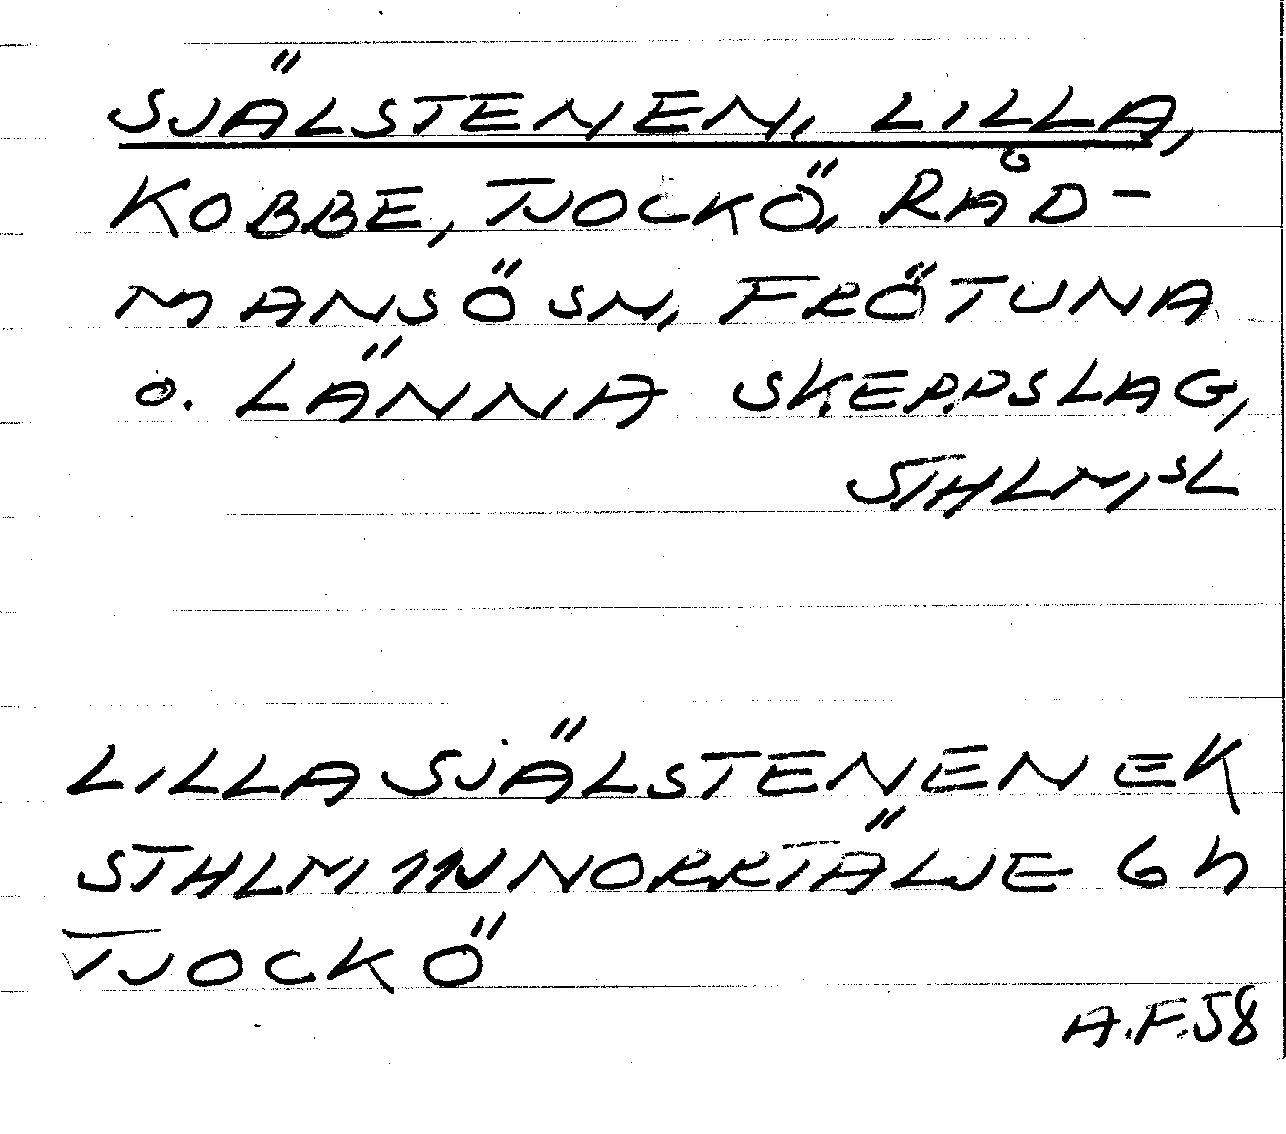 SJÄLSTENEN, LILLA,
KOBBE, TJOCKÖ, RÅD-
MANSÖ SN, FRÖTUNA
O. LÄNNA SKEPPSLAG,
STHLM,SL
LILLA SJÄLSTENEN EK
STHLM 11NV NORRTÄLJE 6h
TJOCKÖ
A.F.58